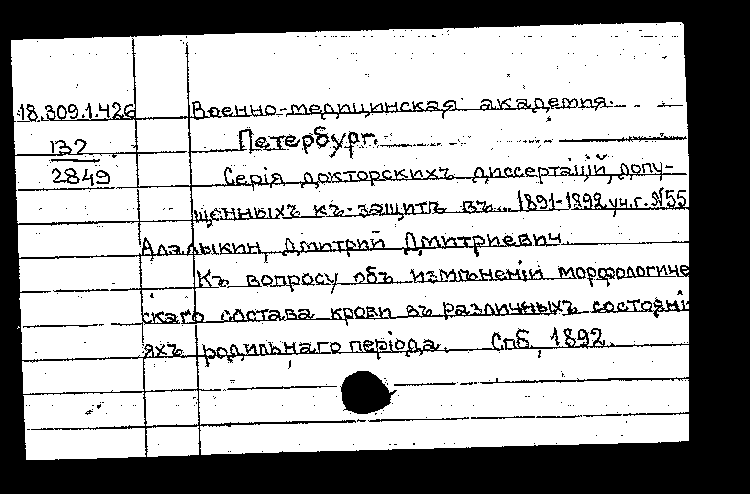 18.309.1.426 Военно-медицинская академия.
132 Петербург.
2849 Серія докторскихъ диссертацій, допу-
щенныхъ къ защитѣ въ... 1891-1892 уч. г. №55
Алалыкин, Дмитрий Дмитриевич.
Къ вопросу объ измѣненіи морфологиче
скаго состава крови въ различныхъ состояні
яхъ родильнаго періода. Спб, 1892.